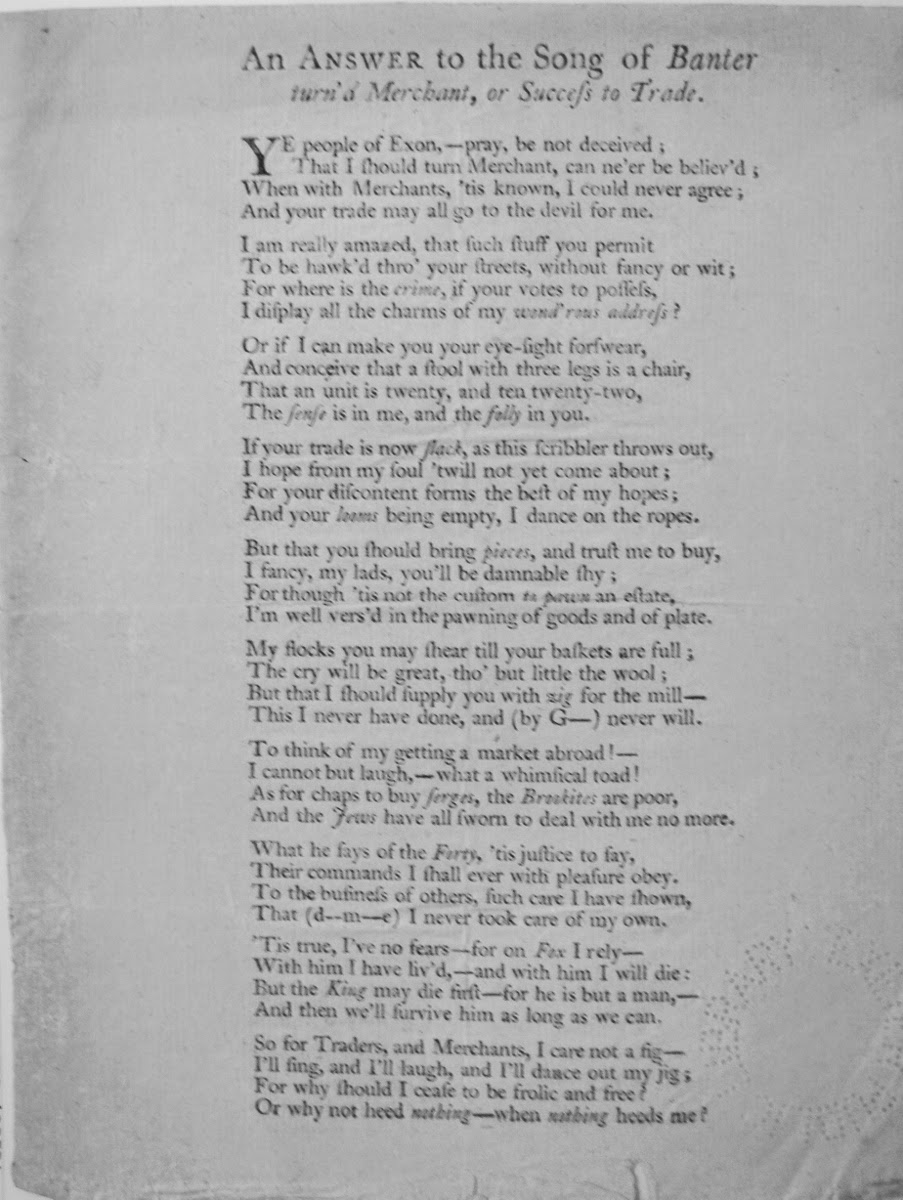 An ANSWER to the Song of Banter
turn'd Merchant, or Succeſs to Trade.
YE people of Exon,—pray, be not deceived;
That I ſhould turn Merchant, can ne'er be believ'd;
When with Merchants, 'tis known, I could never agree;
And your trade may all go to the devil for me.
I am really amazed, that ſuch ſtuff you permit
To be hawk'd thro' your ſtreets, without fancy or wit;
For where is the crime, if your votes to poſſeſs,
I diſplay all the charms of my wond'rous addreſs?
Or if I can make you your eye-ſight forſwear,
And conceive that a ſtool with three legs is a chair,
That an unit is twenty, and ten twenty-two,
The ſenſe is in me, and the folly in you.
If your trade is now ſlack, as this ſcribbler throws out,
I hope from my ſoul 'twill not yet come about;
For your diſcontent forms the beſt of my hopes;
And your looms being empty, I dance on the ropes.
But that you ſhould bring pieces, and truſt me to buy,
I fancy, my lads, you'll be damnable ſhy;
For though 'tis not the cuſtom to pawn an eſtate,
I'm well vers'd in the pawning of goods and of plate.
My flocks you may ſhear till your baſkets are full;
The cry will be great, tho' but little the wool;
But that I ſhould ſupply you with zig for the mill—
This I never have done, and (by G—) never will.
To think of my getting a market abroad!—
I cannot but laugh,—what a whimſical toad!
As for chaps to buy ſerges, the Brookites are poor,
And the Jews have all ſworn to deal with me no more.
What he ſays of the Forty, 'tis juſtice to ſay,
Their commands I ſhall ever with pleaſure obey.
To the buſineſs of others, ſuch care I have ſhown,
That (d--m—e) I never took care of my own.
'Tis true, I've no fears—for on Fox I rely—
With him I have liv'd,—and with him I will die:
But the King may die firſt—for he is but a man,—
And then we'll ſurvive him as long as we can.
So for Traders, and Merchants, I care not a fig—
I'll ſing, and I'll laugh, and I'll dance out my jig;
For why ſhould I ceaſe to be frolic and free?
Or why not heed nothing—when nothing heeds me?